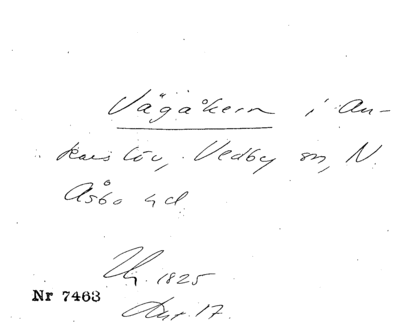 Vägåkern i An-
karslöv, Vedby sn, N.
Åsbo hd
1825
Nr 7463
Akt 17.